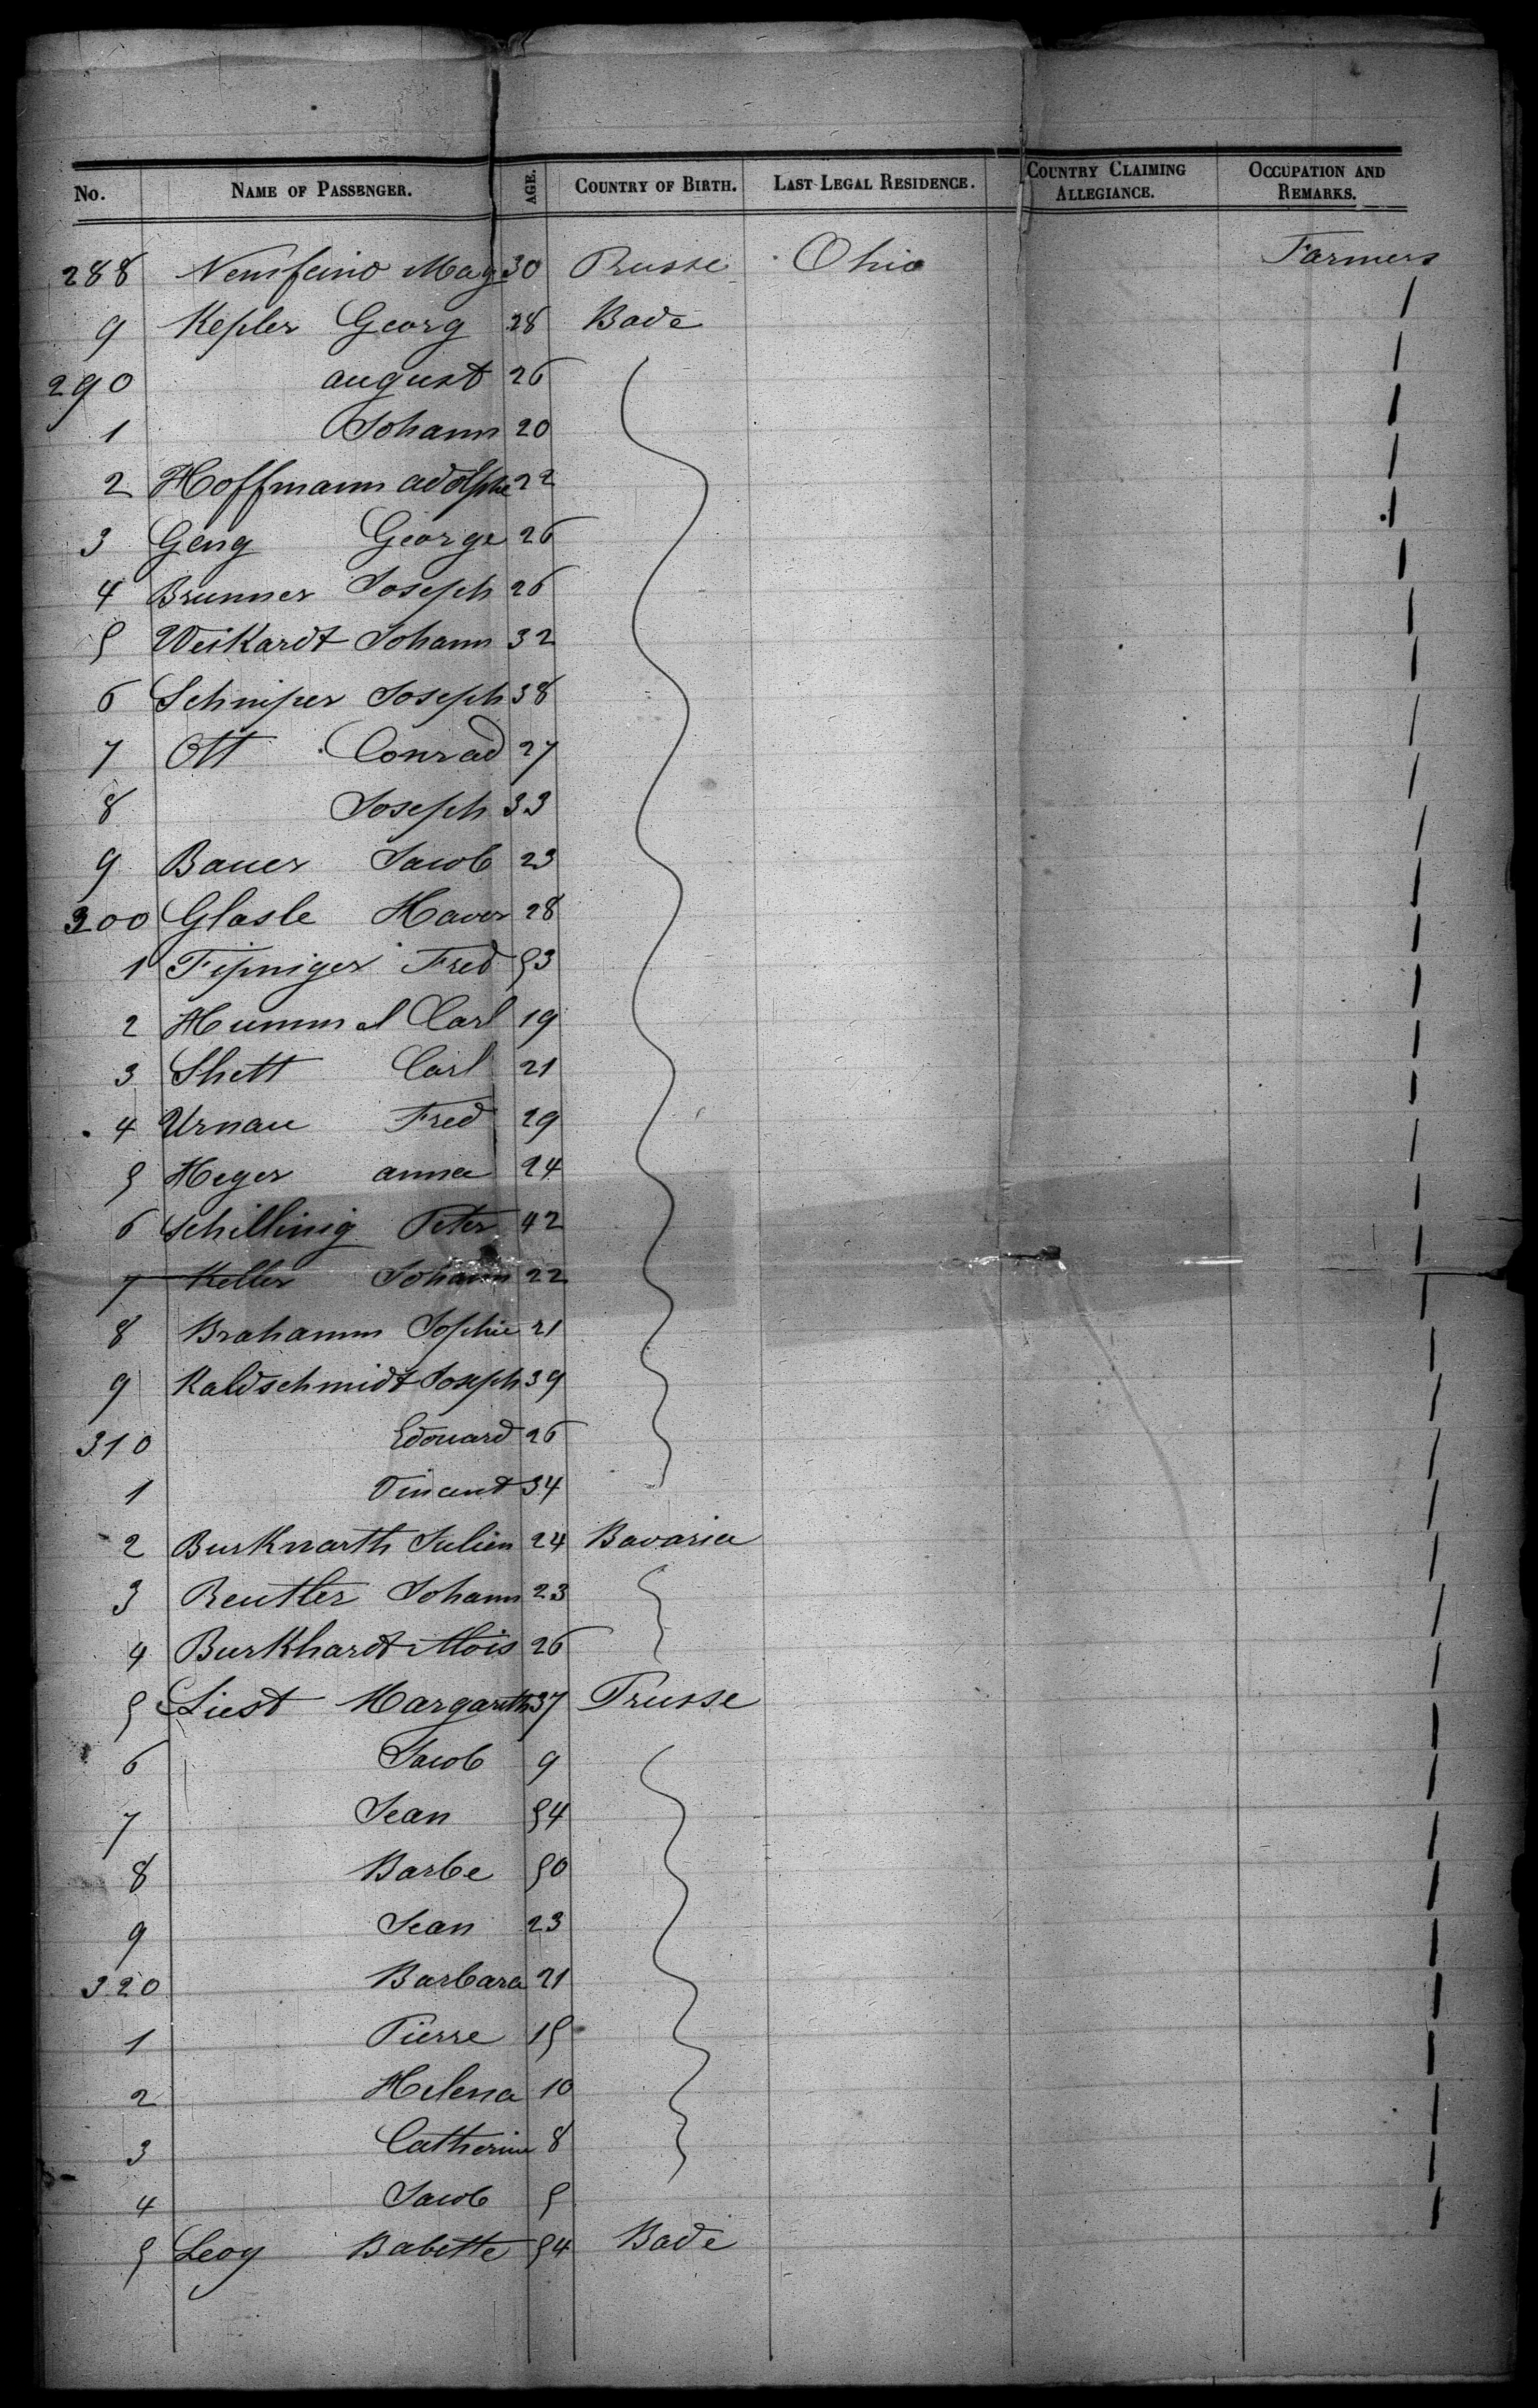 No. NAME OF PASSENGER. AGE. COUNTRY OF BIRTH. LAST LEGAL RESIDENCE. COUNTRY CLAIMING ALLEGIANCE. OCCUPATION AND REMARKS.
288 Mag 30 Prusse Ohio Farmers
9 Kepler Georg 28 Bade
290 august 26
1 Johann 20
2 Hoffmann adolphe 22
3 Geng George 26
4 Brunner Joseph 26
5 Weikardt Johann 32
6 Schniper Joseph 38
7 Ott Conrad 27
8 Joseph 33
9 Bauer Jacob 23
300 Glasle Xaver 28
1 Fred 53
2 Hummel Carl 19
3 Shett Carl 21
4 Urnau Fred 29
5 Heger anna 24
6 Schillinig Peter 42
7 Keller Johann 22
8 Brahamm Sophie 21
9 Kaldschmidt Joseph 39
310 Edouard 26
1 Vincent 34
2 Burknarth Julien 24 Bavaria
3 Reutler Johann 23
4 Burkhardt Alois 26
5 Liest Margareth 37 Prusse
6 Jacob 9
7 Jean 54
8 Barbe 50
9 Jean 23
320 Barbara 21
1 Pierre 15
2 Helena 10
3 Catherine 8
4 Jacob 5
5 Leoy Babette 54 Bade